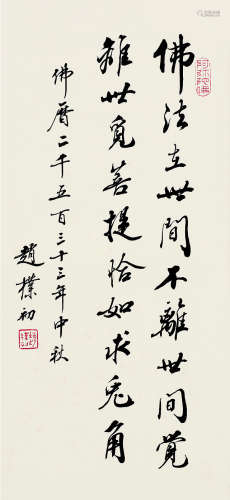 佛法在世間不離世間覺
離世覓菩提恰如求兔角
佛曆二千五百三十三年中秋
趙樸初